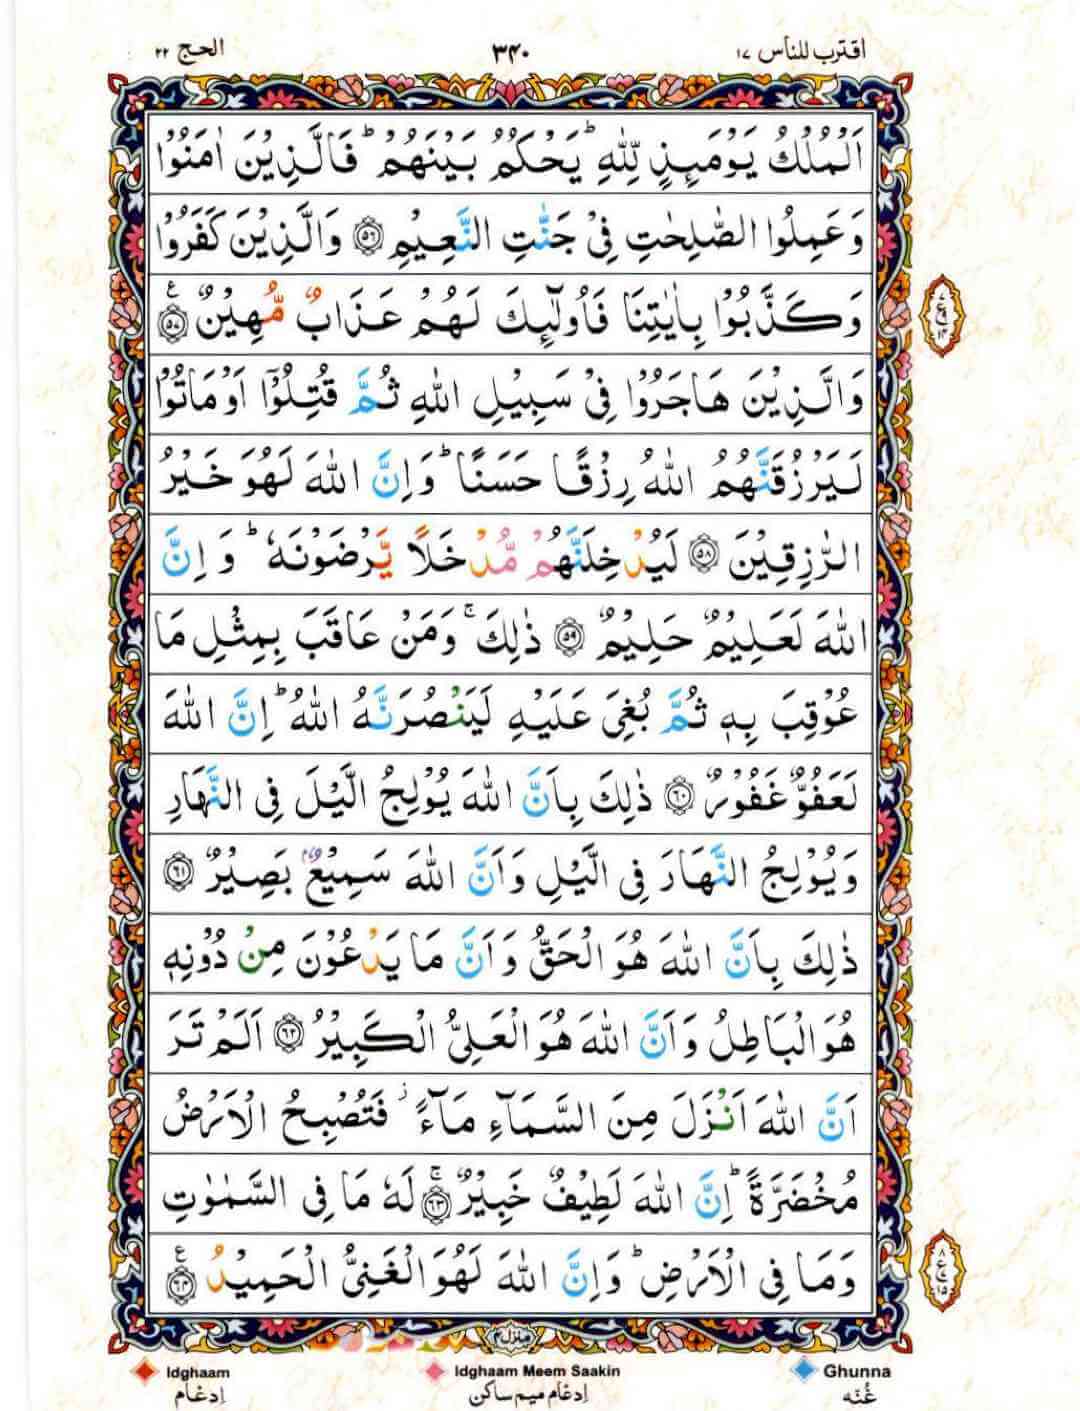 اقترب للناس ۱۷ ۳۴۰ الحج ۲۲
اَلۡمُلۡكُ يَوۡمَٮِٕذٍ لِّلّٰهِ ؕ يَحۡكُمُ بَيۡنَهُمۡ ؕ فَالَّذِيۡنَ اٰمَنُوۡا
وَعَمِلُوا الصّٰلِحٰتِ فِىۡ جَنّٰتِ النَّعِيۡمِ ﴿۵۶﴾ وَالَّذِيۡنَ كَفَرُوۡا
وَكَذَّبُوۡا بِاٰيٰتِنَا فَاُولٰٓٮِٕكَ لَهُمۡ عَذَابٌ مُّهِيۡنٌ ﴿۵۷﴾ ع
وَالَّذِيۡنَ هَاجَرُوۡا فِىۡ سَبِيۡلِ اللّٰهِ ثُمَّ قُتِلُوۡۤا اَوۡ مَاتُوۡا
لَيَرۡزُقَنَّهُمُ اللّٰهُ رِزۡقًا حَسَنًا ؕ وَاِنَّ اللّٰهَ لَهُوَ خَيۡرُ
الرّٰزِقِيۡنَ ﴿۵۸﴾ لَيُدۡخِلَنَّهُمۡ مُّدۡخَلًا يَّرۡضَوۡنَهٗ ؕ وَاِنَّ
اللّٰهَ لَعَلِيۡمٌ حَلِيۡمٌ ﴿۵۹﴾ ذٰلِكَ ۚ وَمَنۡ عَاقَبَ بِمِثۡلِ مَا
عُوۡقِبَ بِهٖ ثُمَّ بُغِىَ عَلَيۡهِ لَيَنۡصُرَنَّهُ اللّٰهُ ؕ اِنَّ اللّٰهَ
لَعَفُوٌّ غَفُوۡرٌ ﴿۶۰﴾ ذٰلِكَ بِاَنَّ اللّٰهَ يُوۡلِجُ الَّيۡلَ فِى النَّهَارِ
وَيُوۡلِجُ النَّهَارَ فِى الَّيۡلِ وَاَنَّ اللّٰهَ سَمِيۡعٌۢ بَصِيۡرٌ ﴿۶۱﴾
ذٰلِكَ بِاَنَّ اللّٰهَ هُوَ الۡحَقُّ وَاَنَّ مَا يَدۡعُوۡنَ مِنۡ دُوۡنِهٖ
هُوَ الۡبَاطِلُ وَاَنَّ اللّٰهَ هُوَ الۡعَلِىُّ الۡكَبِيۡرُ ﴿۶۲﴾ اَلَمۡ تَرَ
اَنَّ اللّٰهَ اَنۡزَلَ مِنَ السَّمَآءِ مَآءً ز فَتُصۡبِحُ الۡاَرۡضُ
مُخۡضَرَّةً ؕ اِنَّ اللّٰهَ لَطِيۡفٌ خَبِيۡرٌ ۚ ﴿۶۳﴾ لَهٗ مَا فِى السَّمٰوٰتِ
وَمَا فِى الۡاَرۡضِ ؕ وَاِنَّ اللّٰهَ لَهُوَ الۡغَنِىُّ الۡحَمِيۡدُ ﴿۶۴﴾ ع
منزل ۴
Idghaam Idghaam Meem Saakin Ghunna
اِدغام اِدغام میم ساکن غُنّه